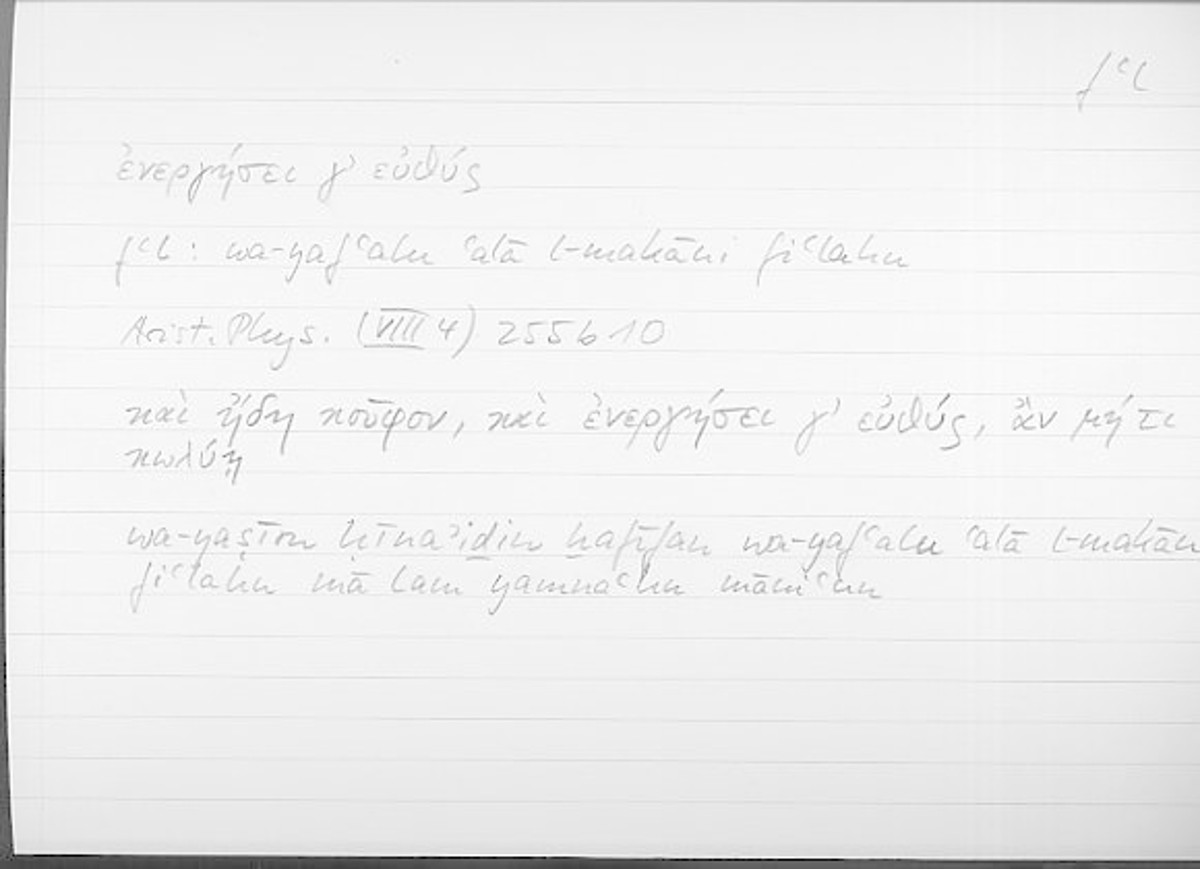 fʿl
ἐνεργήσει γ’ εὐθύς
fʿl: wa-yafʿalu ʿalā l-makāni fiʿlahu
Arist. Phys. (VIII 4) 255b10
καὶ ἤδη κοῦφον, καὶ ἐνεργήσει γ’ εὐθύς, ἂν μή τι
κωλύῃ
wa-yaṣīru ḥīnaʾiḏin ḫafīfan wa-yafʿalu ʿalā l-makān
fiʿlahu mā lam yamnaʿhu māniʿun